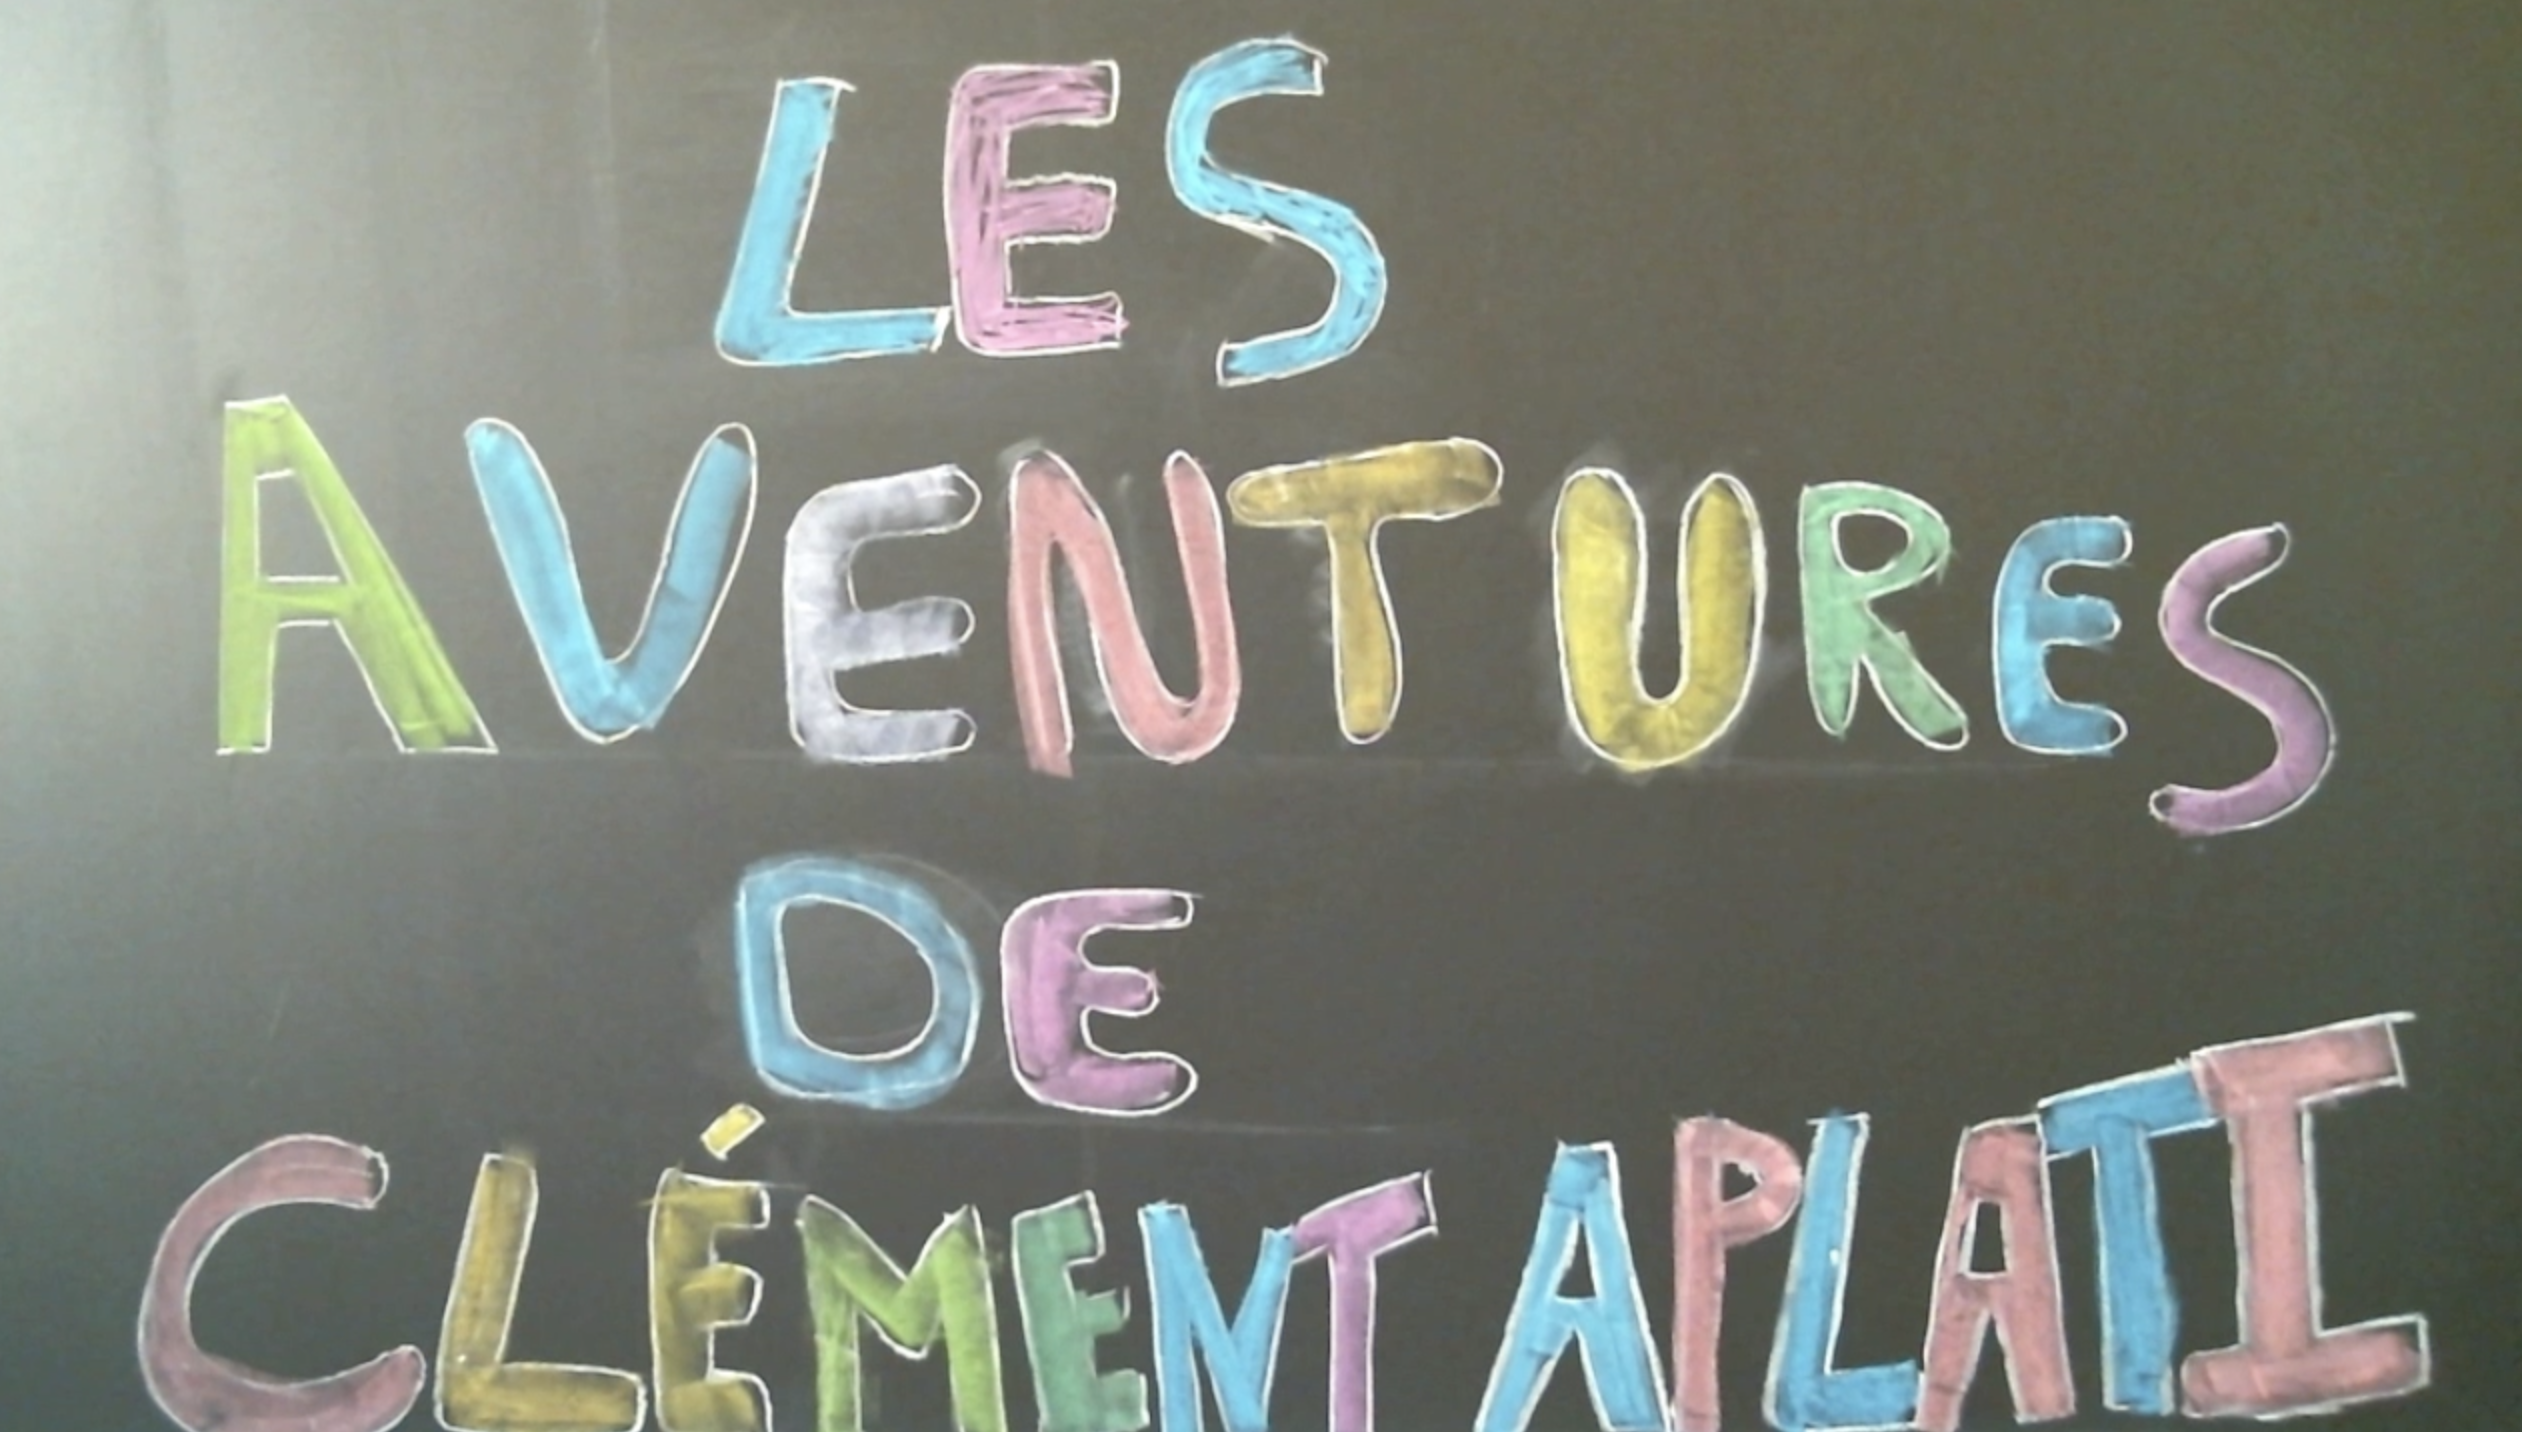 LES
AVENTURES
DE
CLÉMENT APLATI